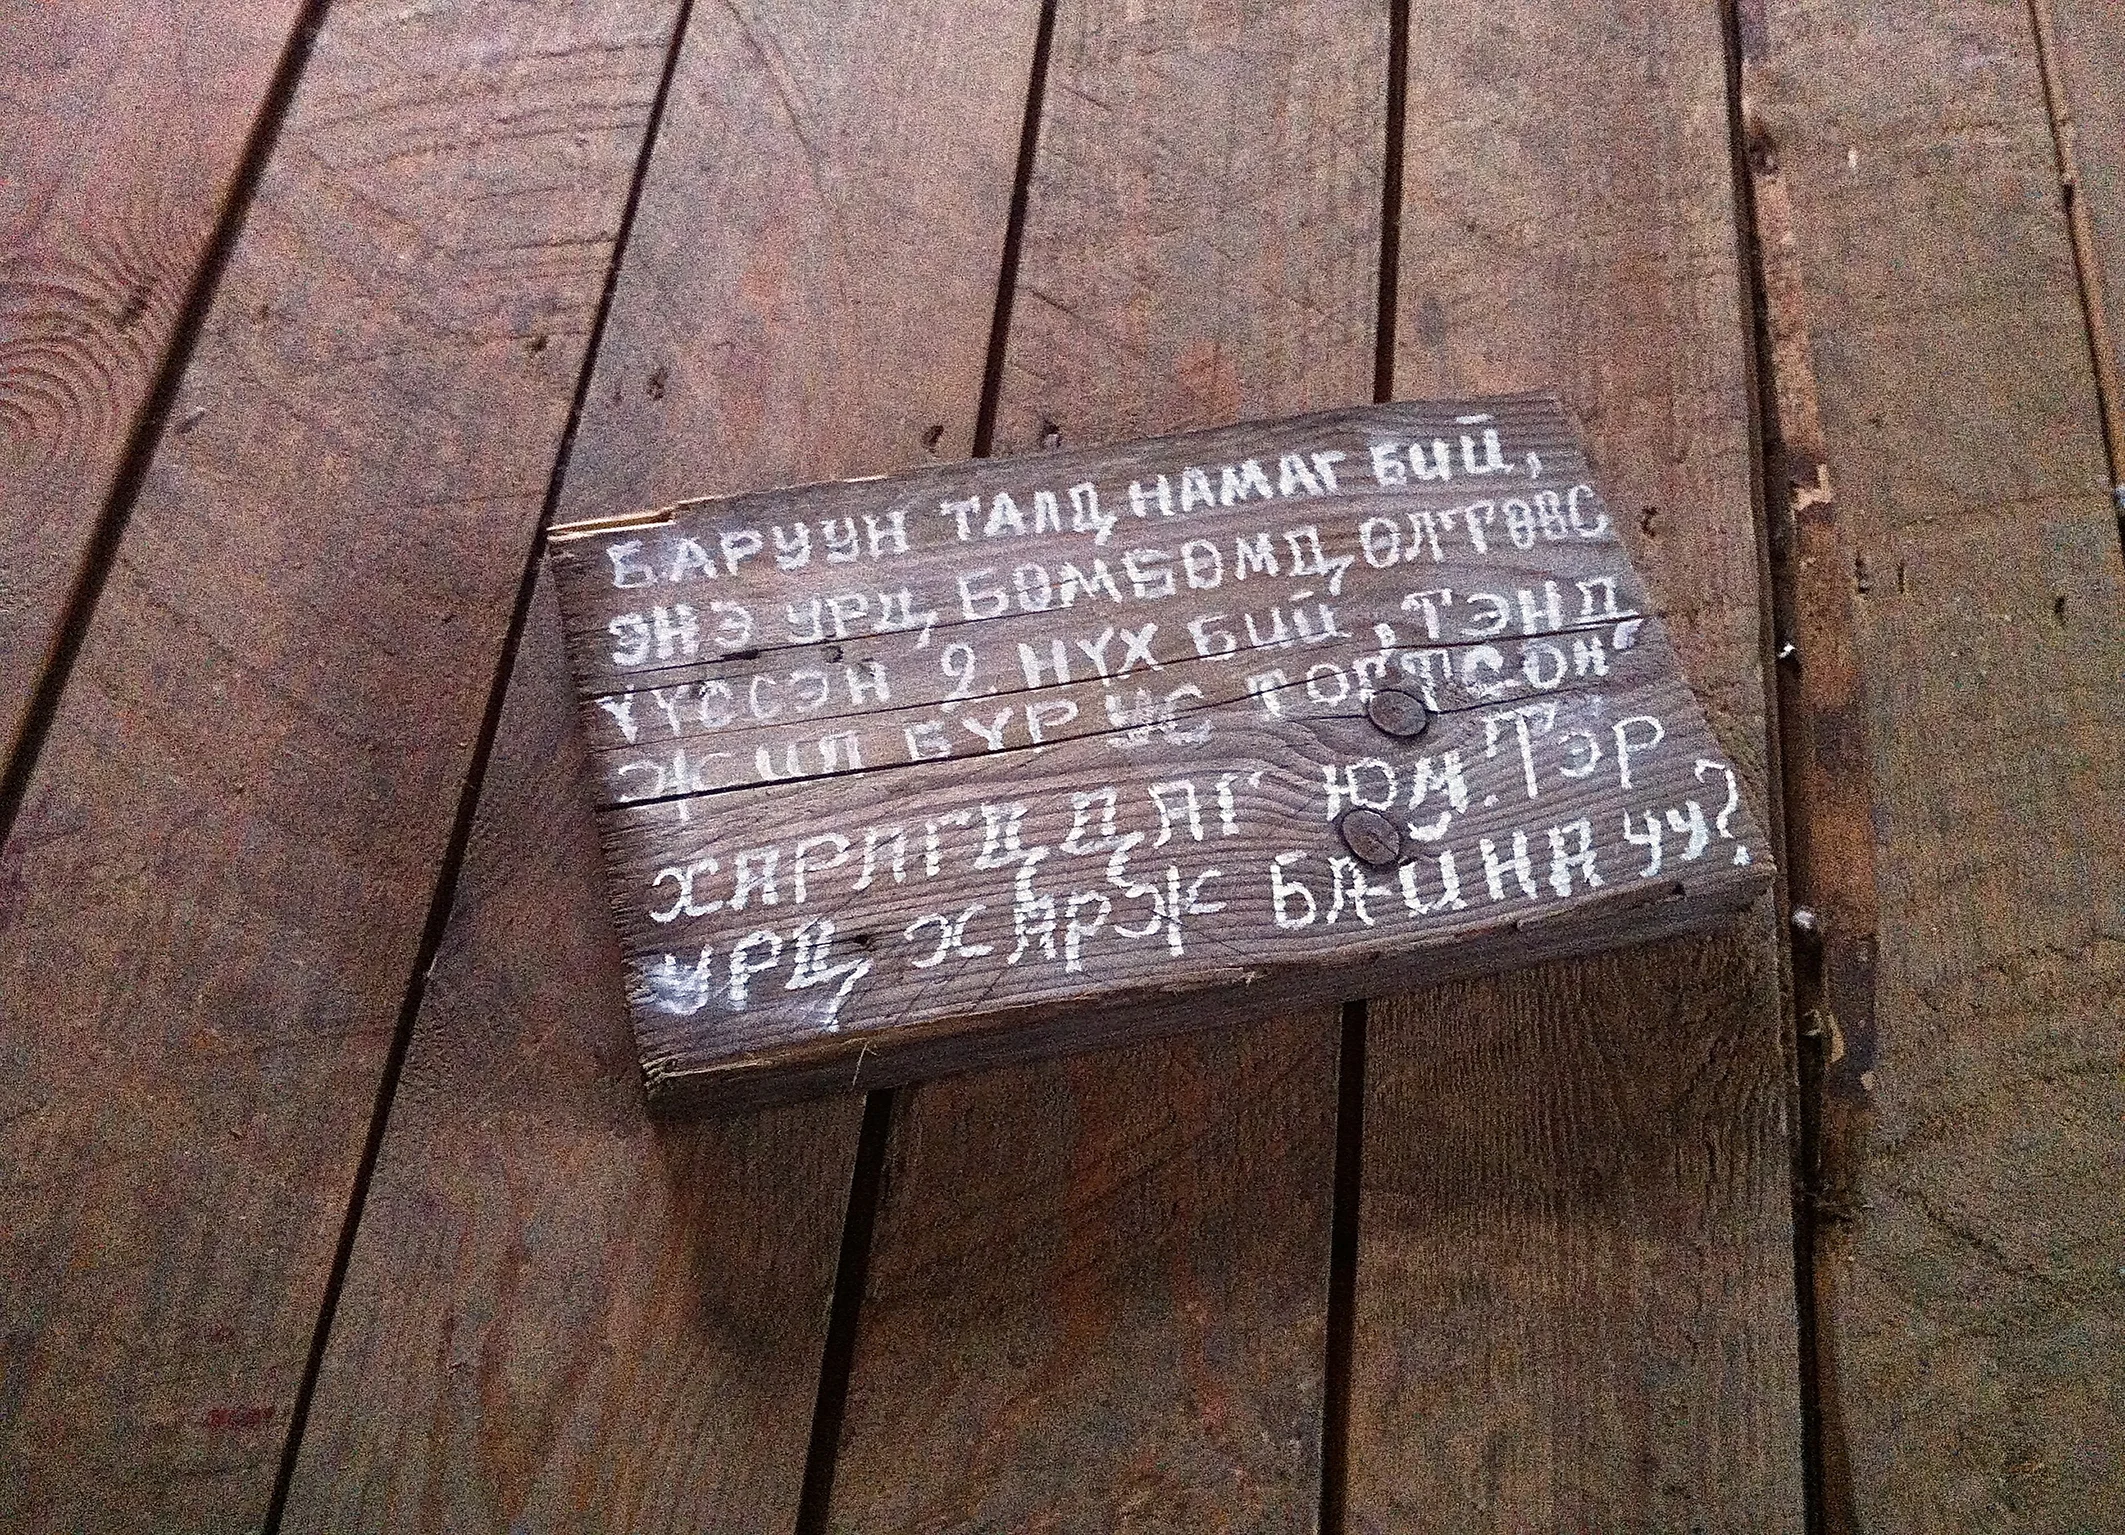 БАРУУН ТАЛД НАМАГ БИЙ,
ЭНЭ УРД, БӨМБӨМД ӨЛТӨӨС
ҮҮССЭН 2 НҮХ БИЙ, ТЭНД
ЖИЛ БҮР УС ТОГТСОН
ХАРАГДДАГ ЮМ. ТЭР
УРД ХАРЖ БАЙНА УУ?